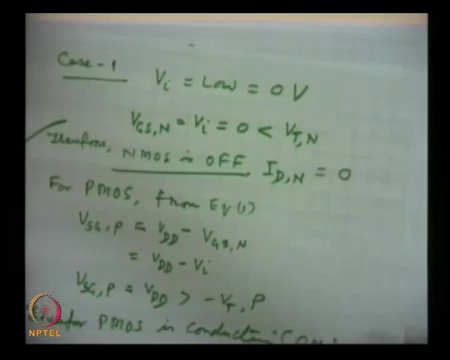 Case-1 Vi = Low = 0 V
VGS,N = Vi = 0 < VT,N
Therefore, NMOS is OFF, ID,N = 0
For PMOS, from Eq(1)
VSG,P = VDD - VGS,N
= VDD - Vi
VSG,P = VDD > -VT,P
PMOS is in conduction (ON)
NPTEL